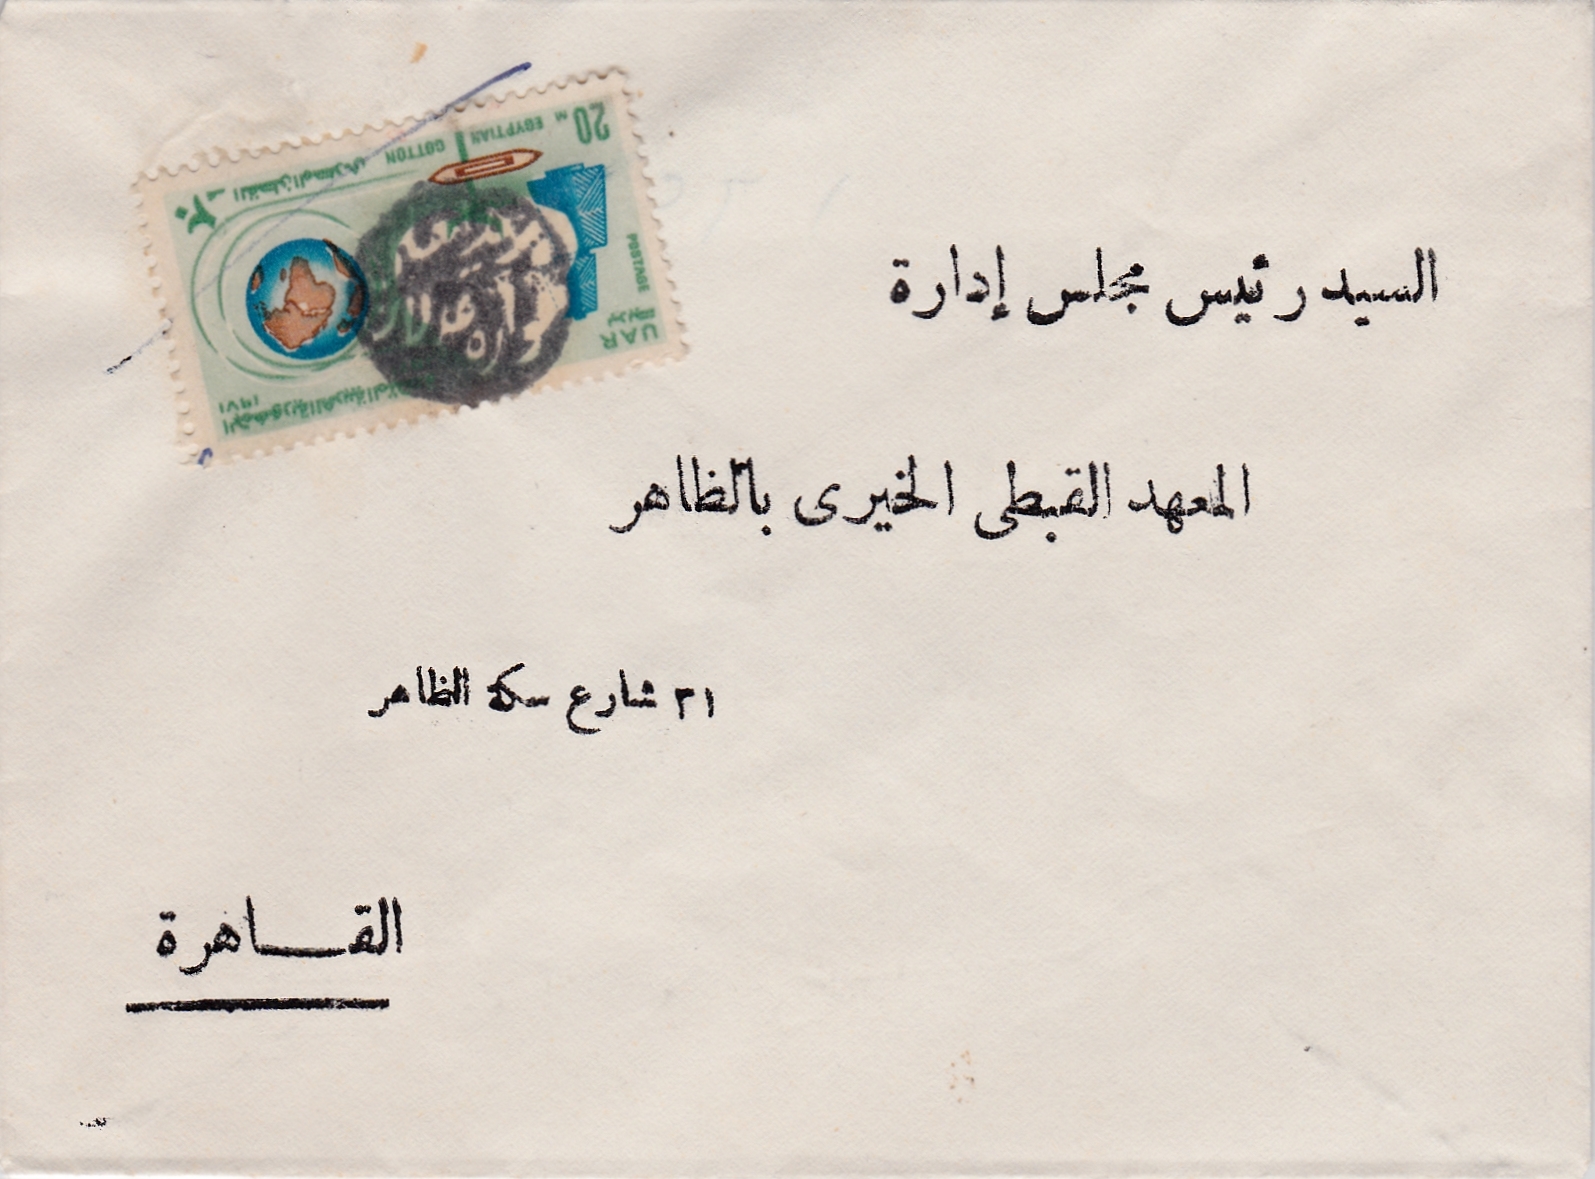 20 M EGYPTIAN COTTON القطن المصرى ٢٠
POSTAGE
UAR
١٩٧١
السيد رئيس مجلس إدارة
المعهد القبطى الخيرى بالظاهر
٣١ شارع سكة الظاهر
القـــاهرة